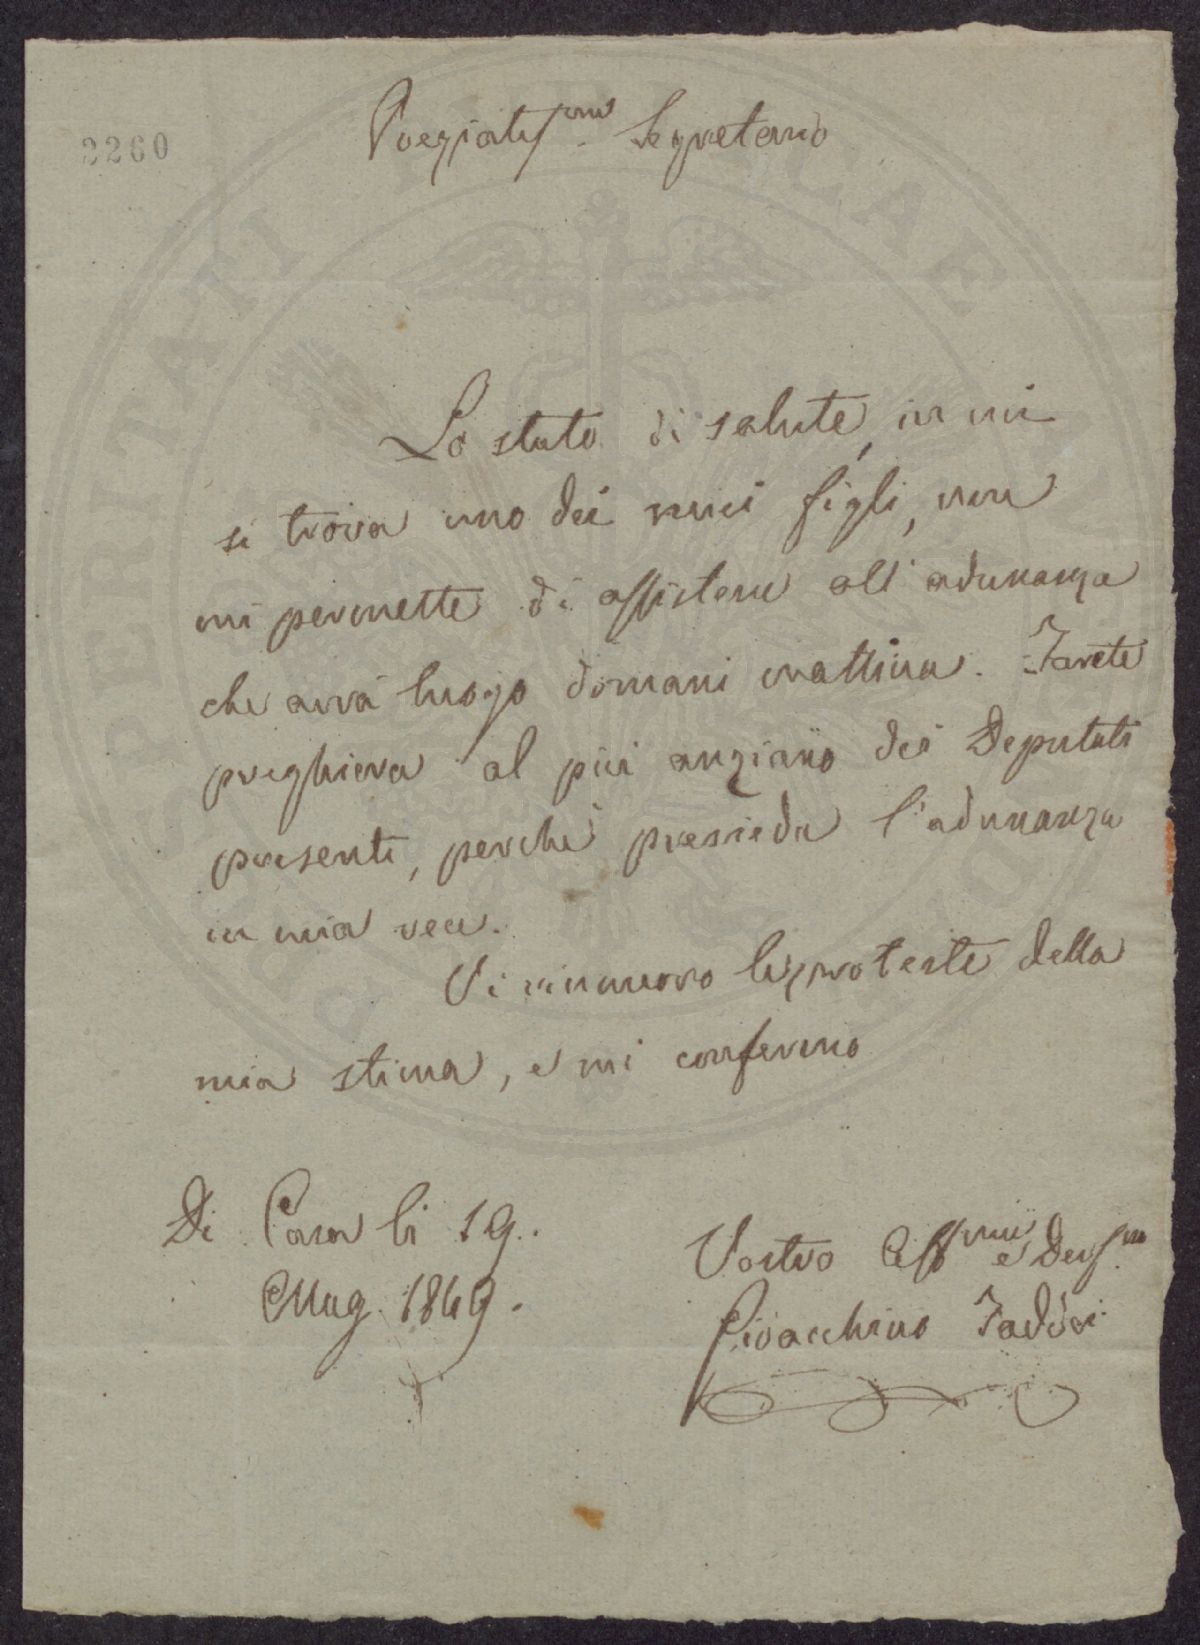 2260
Pregiatiss.mo Segretario
Lo stato di salute, in cui
si trova uno dei miei figli, non
mi permette di assistere all'adunanza
che avrà luogo domani mattina. Farete
preghiera al più anziano dei Deputati
presenti, perché presieda l'adunanza
in mia vece.
Vi rinnuovo le proteste della
mia stima, e mi confermo
Di Casa li 19.
Mag. 1849.
Vostro Aff.mo e Dev.mo
Gioacchino Taddei
PROSPERITATI PUBLICAE